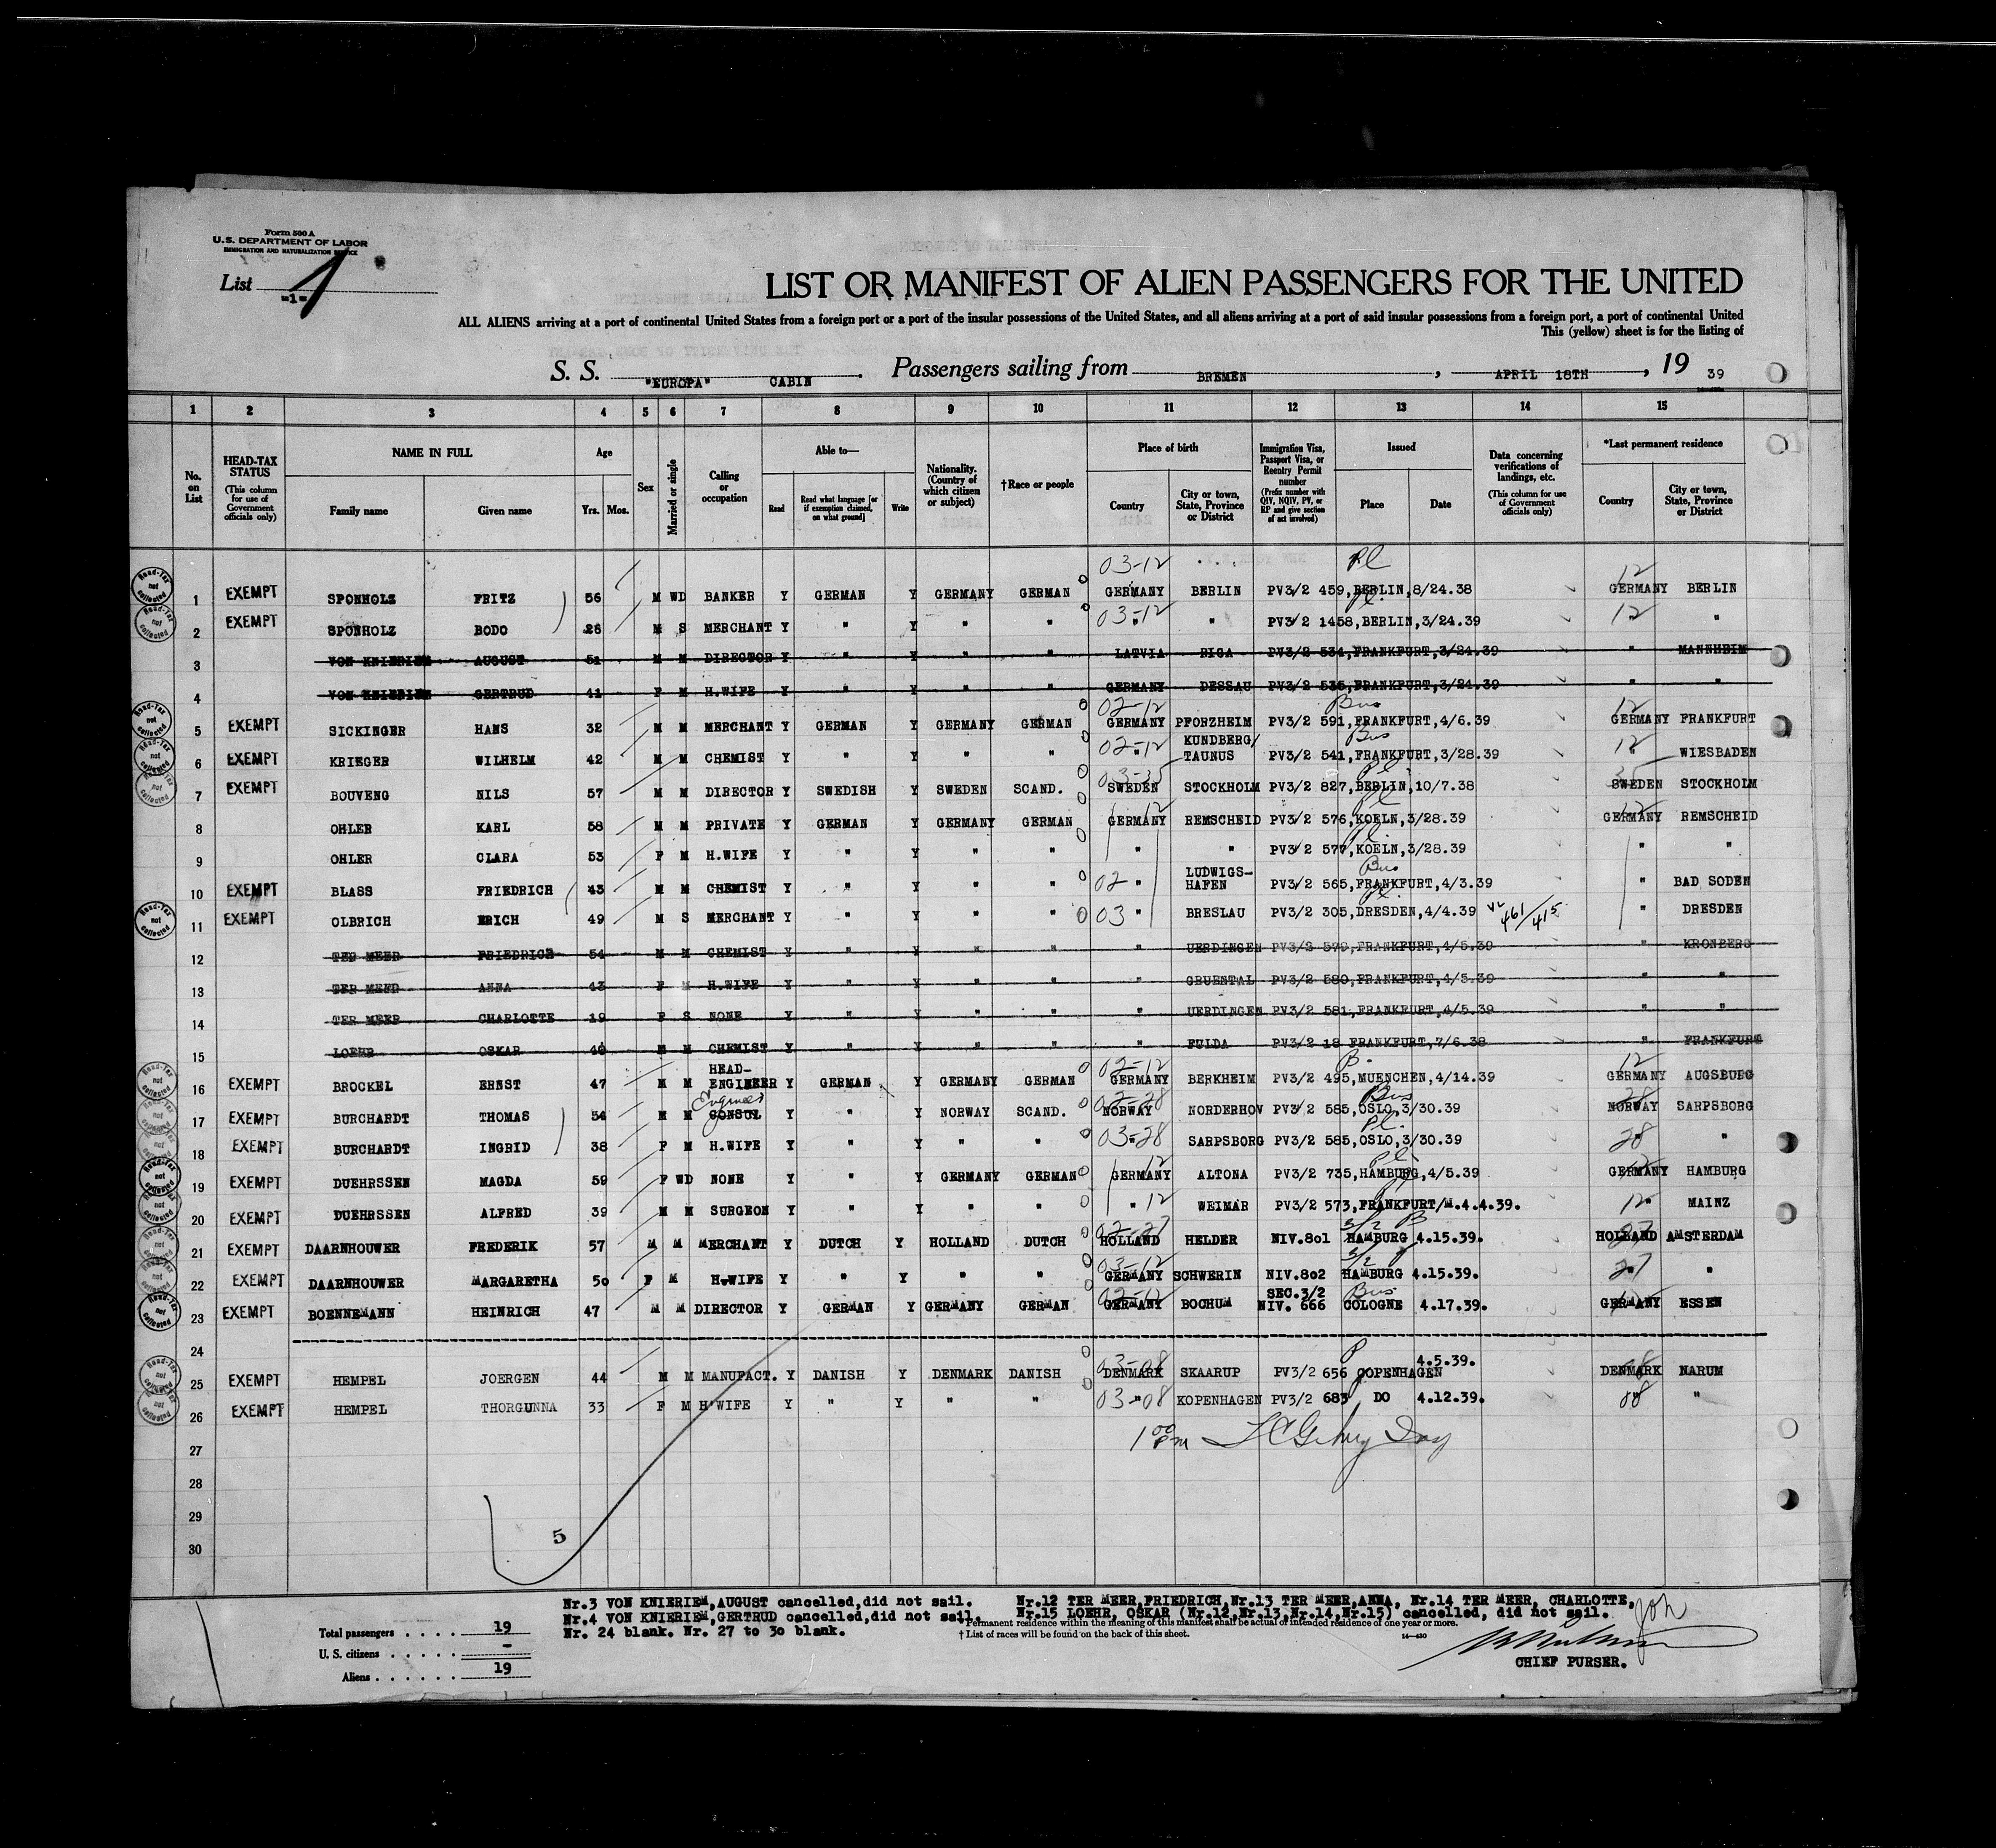 Form 500 A
U.S. DEPARTMENT OF LABOR
IMMIGRATION AND NATURALIZATION SERVICE
List -1- 1
LIST OR MANIFEST OF ALIEN PASSENGERS FOR THE UNITED
ALL ALIENS arriving at a port of continental United States from a foreign port or a port of the insular possessions of the United States, and all aliens arriving at a port of said insular possessions from a foreign port, a port of continental United
This (yellow) sheet is for the listing of
S. S. "EUROPA" CABIN. Passengers sailing from BREMEN, APRIL 18TH, 19 39
1 2 3 4 5 6 7 8 9 10 11 12 13 14 15
No. on List
HEAD-TAX STATUS (This column for use of Government officials only)
NAME IN FULL Family name Given name
Age Yrs. Mos.
Sex
Married or single
Calling or occupation
Able to— Read Read what language [or if exemption claimed, on what ground] Write
Nationality. (Country of which citizen or subject)
†Race or people
Place of birth Country City or town, State, Province or District
Immigration Visa, Passport Visa, or Reentry Permit number (Prefix number with QIV, NQIV, PV, or RP and give section of act involved)
Issued Place Date
Data concerning verifications of landings, etc. (This column for use of Government officials only)
*Last permanent residence Country City or town, State, Province or District
03-12 Pl 12
1 EXEMPT SPONHOLZ FRITZ 56 M WD BANKER Y GERMAN Y GERMANY GERMAN GERMANY BERLIN PV3/2 459, BERLIN, 8/24.38 GERMANY BERLIN
03-12 Pl. 12
2 EXEMPT SPONHOLZ BODO 26 M S MERCHANT Y " Y " " " " PV3/2 1458, BERLIN, 3/24.39 " "
3 VON KNIERIEM AUGUST 51 M M DIRECTOR Y " Y " " LATVIA RIGA PV3/2 534, FRANKFURT, 3/24.39 " MANNHEIM
4 VON KNIERIEM GERTRUD 41 F M H.WIFE Y " Y " " GERMANY DESSAU PV3/2 535, FRANKFURT, 3/24.39 " "
02-12 Bus 12
5 EXEMPT SICKINGER HANS 32 M M MERCHANT Y GERMAN Y GERMANY GERMAN GERMANY PFORZHEIM PV3/2 591, FRANKFURT, 4/6.39 GERMANY FRANKFURT
02-12 Bus 12
6 EXEMPT KRIEGER WILHELM 42 M M CHEMIST Y " Y " " " KUNDBERG/TAUNUS PV3/2 541, FRANKFURT, 3/28.39 " WIESBADEN
03-35 Pl 35
7 EXEMPT BOUVENG NILS 57 M M DIRECTOR Y SWEDISH Y SWEDEN SCAND. SWEDEN STOCKHOLM PV3/2 827, BERLIN, 10/7.38 SWEDEN STOCKHOLM
12 Pl 12
8 OHLER KARL 58 M M PRIVATE Y GERMAN Y GERMANY GERMAN GERMANY REMSCHEID PV3/2 576, KOELN, 3/28.39 GERMANY REMSCHEID
Pl.
9 OHLER CLARA 53 F M H.WIFE Y " Y " " " " PV3/2 577, KOELN, 3/28.39 " "
02 Bus
10 EXEMPT BLASS FRIEDRICH 43 M M CHEMIST Y " Y " " " LUDWIGS-HAFEN PV3/2 565, FRANKFURT, 4/3.39 " BAD SODEN
03 Pl. 461/415
11 EXEMPT OLBRICH ERICH 49 M S MERCHANT Y " Y " " " BRESLAU PV3/2 305, DRESDEN, 4/4.39 " DRESDEN
12 TER MEER FRIEDRICH 54 M M CHEMIST Y " Y " " " UERDINGEN PV3/2 579, FRANKFURT, 4/5.39 " KRONBERG
13 TER MEER ANNA 43 F M H.WIFE Y " Y " " " GRUENTAL PV3/2 580, FRANKFURT, 4/5.39 " "
14 TER MEER CHARLOTTE 19 F S NONE Y " Y " " " UERDINGEN PV3/2 581, FRANKFURT, 4/5.39 " "
15 LOEHR OSKAR 46 M M CHEMIST Y " Y " " " FULDA PV3/2 18 FRANKFURT, 7/6.38 " FRANKFURT
02-12 B. 12
16 EXEMPT BROCKEL ERNST 47 M M HEAD-ENGINEER Y GERMAN Y GERMANY GERMAN GERMANY BERKHEIM PV3/2 495, MUENCHEN, 4/14.39 GERMANY AUGSBURG
Engineer 02-28 Bus 28
17 EXEMPT BURCHARDT THOMAS 54 M M CONSUL Y " Y NORWAY SCAND. NORWAY NORDERHOV PV3/2 585, OSLO, 3/30.39 NORWAY SARPSBORG
03-28 Pl. 28
18 EXEMPT BURCHARDT INGRID 38 F M H.WIFE Y " Y " " " SARPSBORG PV3/2 585, OSLO, 3/30.39 "
12 Pl 12
19 EXEMPT DUEHRSSEN MAGDA 59 F WD NONE Y " Y GERMANY GERMAN GERMANY ALTONA PV3/2 735, HAMBURG, 4/5.39 GERMANY HAMBURG
12 12
20 EXEMPT DUEHRSSEN ALFRED 39 M M SURGEON Y " Y " " " WEIMAR PV3/2 573, FRANKFURT/M. 4.4.39. " MAINZ
02-27 3/2 B 27
21 EXEMPT DAARNHOUWER FREDERIK 57 M M MERCHANT Y DUTCH Y HOLLAND DUTCH HOLLAND HELDER NIV.801 HAMBURG 4.15.39. HOLLAND AMSTERDAM
03-12 3/2 P 27
22 EXEMPT DAARNHOUWER MARGARETHA 50 F M H.WIFE Y " Y " " GERMANY SCHWERIN NIV.802 HAMBURG 4.15.39. " "
02-12 Bus
23 EXEMPT BOENNEMANN HEINRICH 47 M M DIRECTOR Y GERMAN Y GERMANY GERMAN GERMANY BOCHUM SEC.3/2 NIV. 666 COLOGNE 4.17.39. GERMANY ESSEN
24
03-08 P 08
25 EXEMPT HEMPEL JOERGEN 44 M M MANUFACT. Y DANISH Y DENMARK DANISH DENMARK SKAARUP PV3/2 656 COPENHAGEN 4.5.39. DENMARK NARUM
03-08 08
26 EXEMPT HEMPEL THORGUNNA 33 F M H'WIFE Y " Y " " " KOPENHAGEN PV3/2 683 DO 4.12.39. " "
27 1 00 PM
28
29
30
5
Nr.3 VON KNIERIEM, AUGUST cancelled, did not sail. Nr.12 TER MEER, FRIEDRICH, Nr.13 TER MEER, ANNA, Nr.14 TER MEER, CHARLOTTE,
Nr.4 VON KNIERIEM, GERTRUD cancelled, did not sail. Nr.15 LOEHR, OSKAR (Nr.12, Nr.13, Nr.14, Nr.15) cancelled, did not sail.
Nr. 24 blank. Nr. 27 to 30 blank.
Permanent residence within the meaning of this manifest shall be actual or intended residence of one year or more.
† List of races will be found on the back of this sheet.
14—430
Total passengers . . . . 19
U. S. citizens . . . . . . -
Aliens . . . . . . 19
CHIEF PURSER.